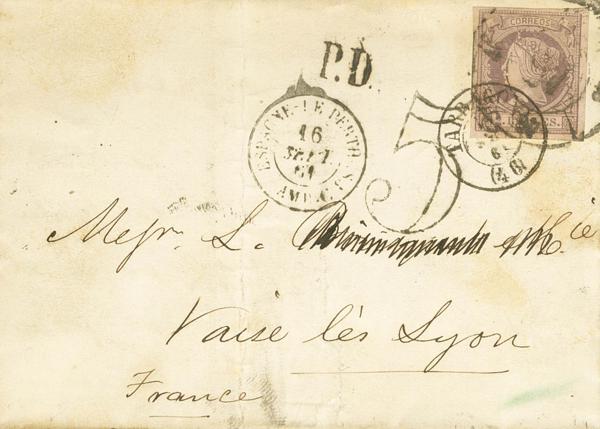 CORREOS
P.D.
ESPAGNE - LE PERTHUS
16
SEPT.
61
AMB. C.
5
TARRA
(94)
Messr. L.
Cie
Vaise lès Lyon
France